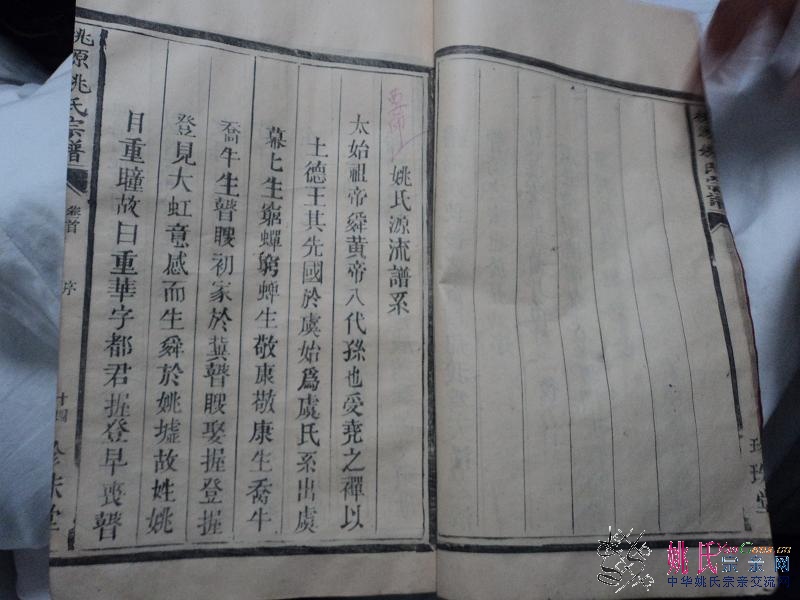 姚氏源流譜系
太始祖帝舜黄帝八代孫也受堯之禪以
土德王其先國於虞始爲虞氏系出虞
幕匕生窮蟬窮蟬生敬康敬康生喬牛
喬牛生瞽瞍初家於冀瞽瞍娶握登握
登見大虹意感而生舜於姚墟故姓姚
目重瞳故曰重華字都君握登早喪瞽
姚源姚氏宗譜
卷首
序
十四
珍珠堂
姚氏宗亲网
中华姚氏宗亲交流网